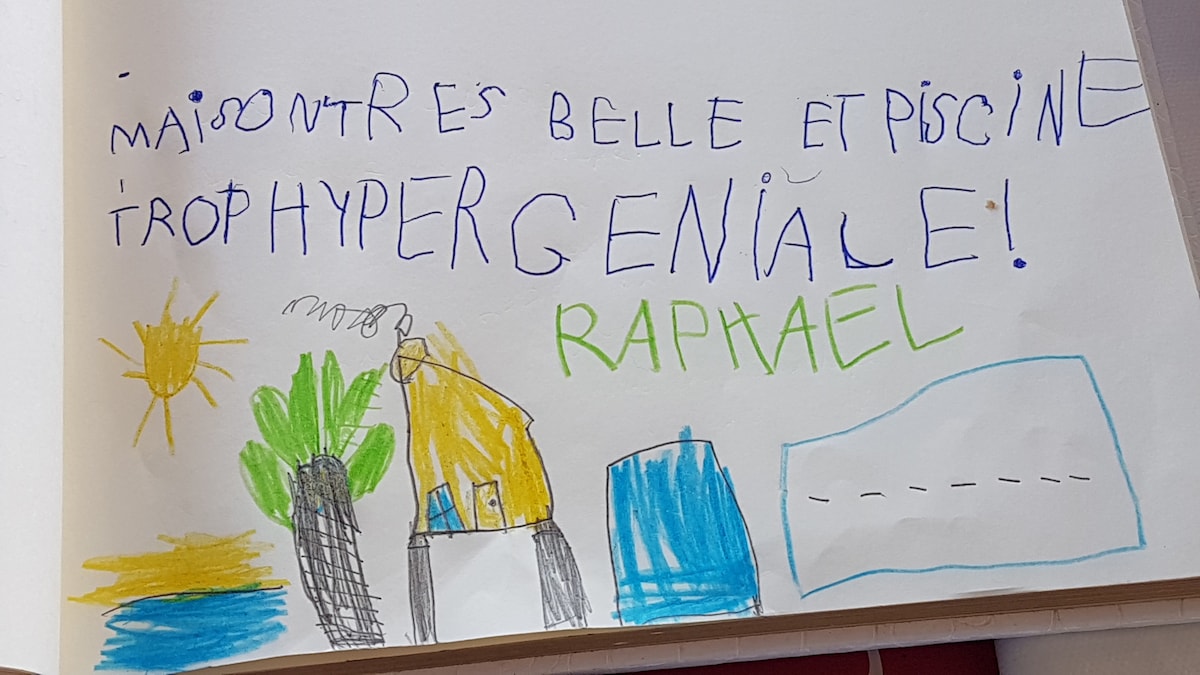 MAiSON TRES BELLE ET PiSCiNE
TROP HYPER GENiALE!
RAPHAEL